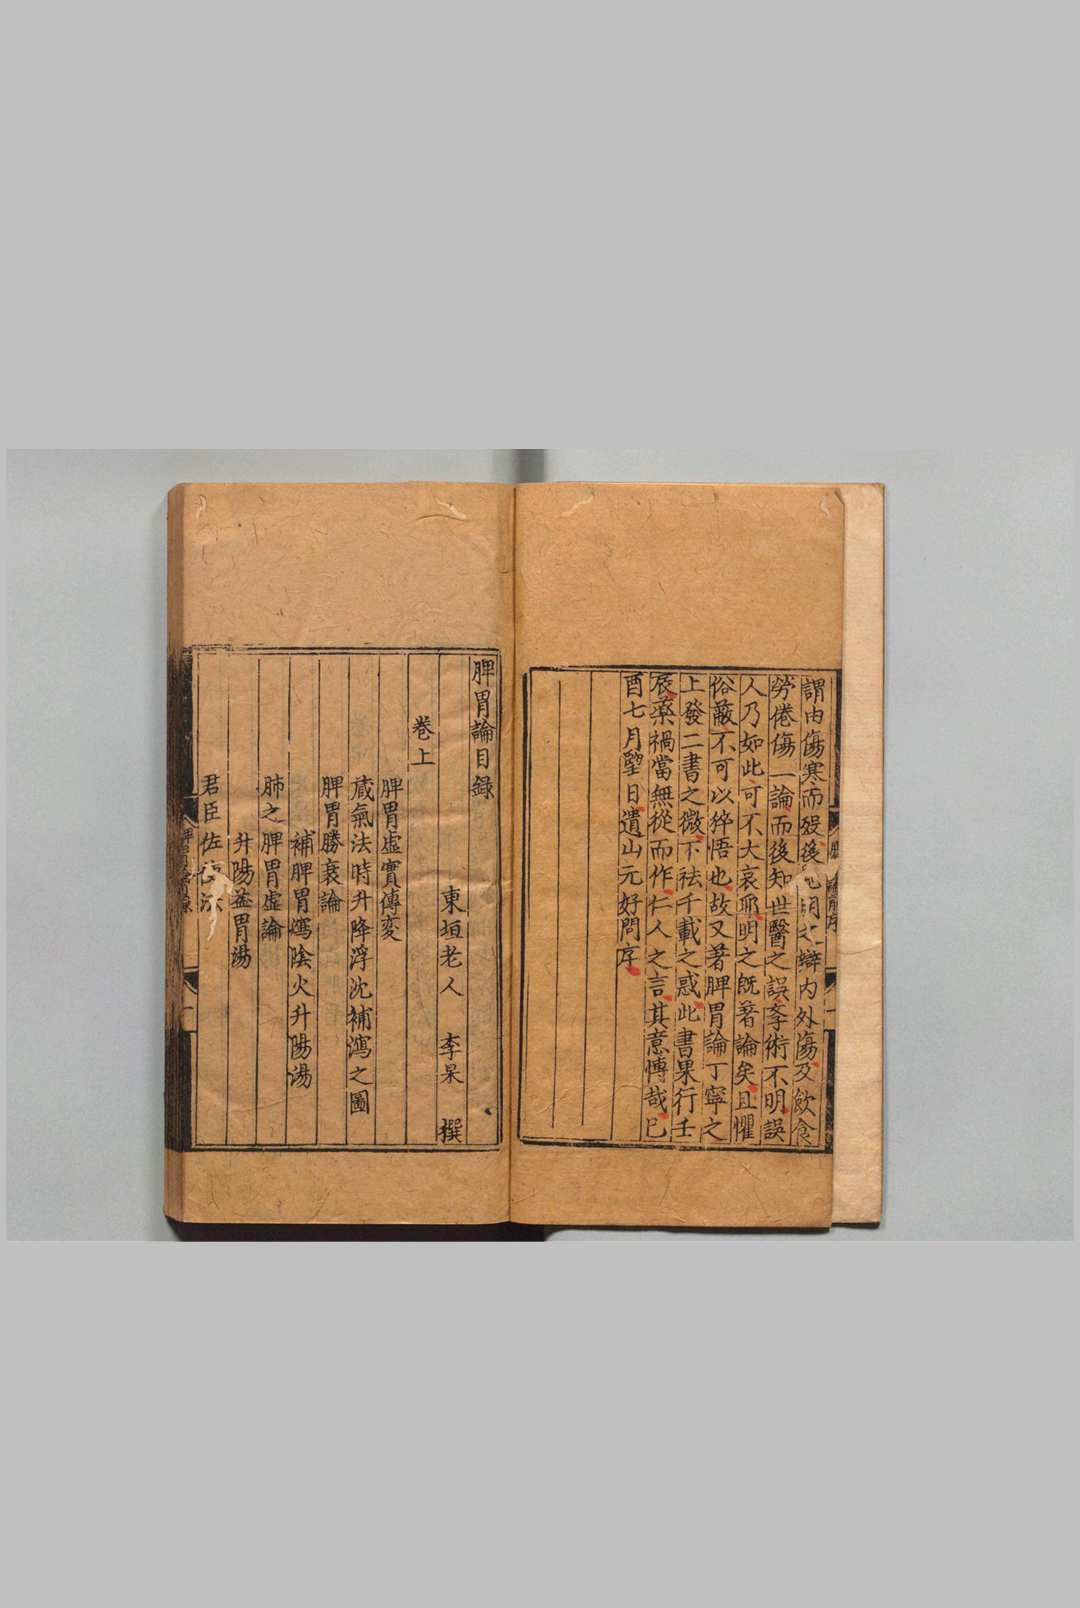 謂由傷寒而歿後見明之辯内外傷及飲食
勞倦傷一論而後知世醫之誤學術不明誤
人乃如此可不大哀耶明之既著論矣且懼
俗蔽不可以猝悟也故又著脾胃論丁寧之
上發二書之微下祛千載之惑此書果行壬
辰藥禍當無從而作仁人之言其意愽哉已
酉七月朢日遺山元好問序
脾胃論目録
東垣老人 李杲 撰
卷上
脾胃虛實傳変
蔵氣法時升降浮沈補瀉之圖
脾胃勝衰論
補脾胃瀉陰火升陽湯
肺之脾胃虛論
升陽益胃湯
君臣佐法